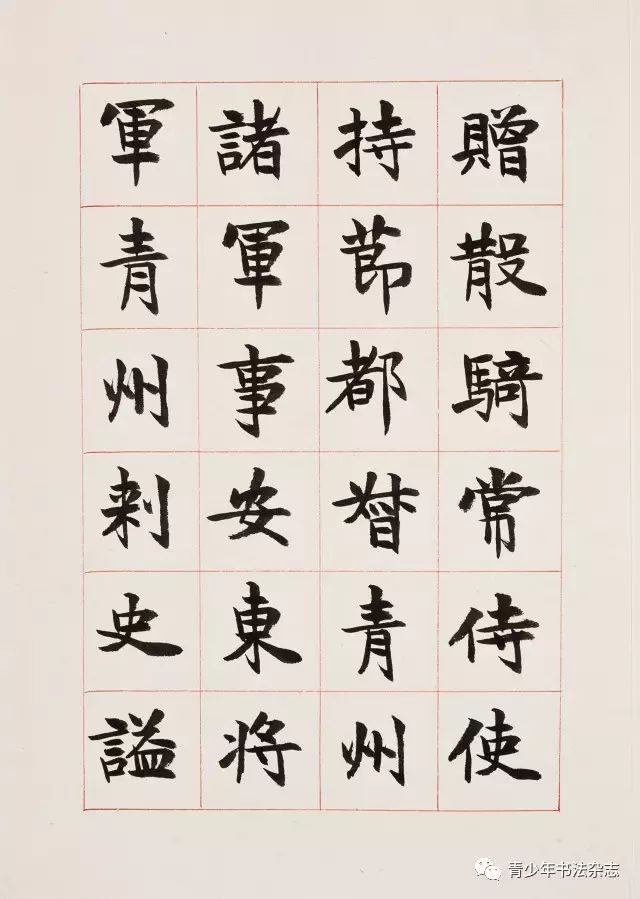 贈散騎常侍使
持節都督青州
諸軍事安東將
軍青州刺史謚
青少年书法杂志